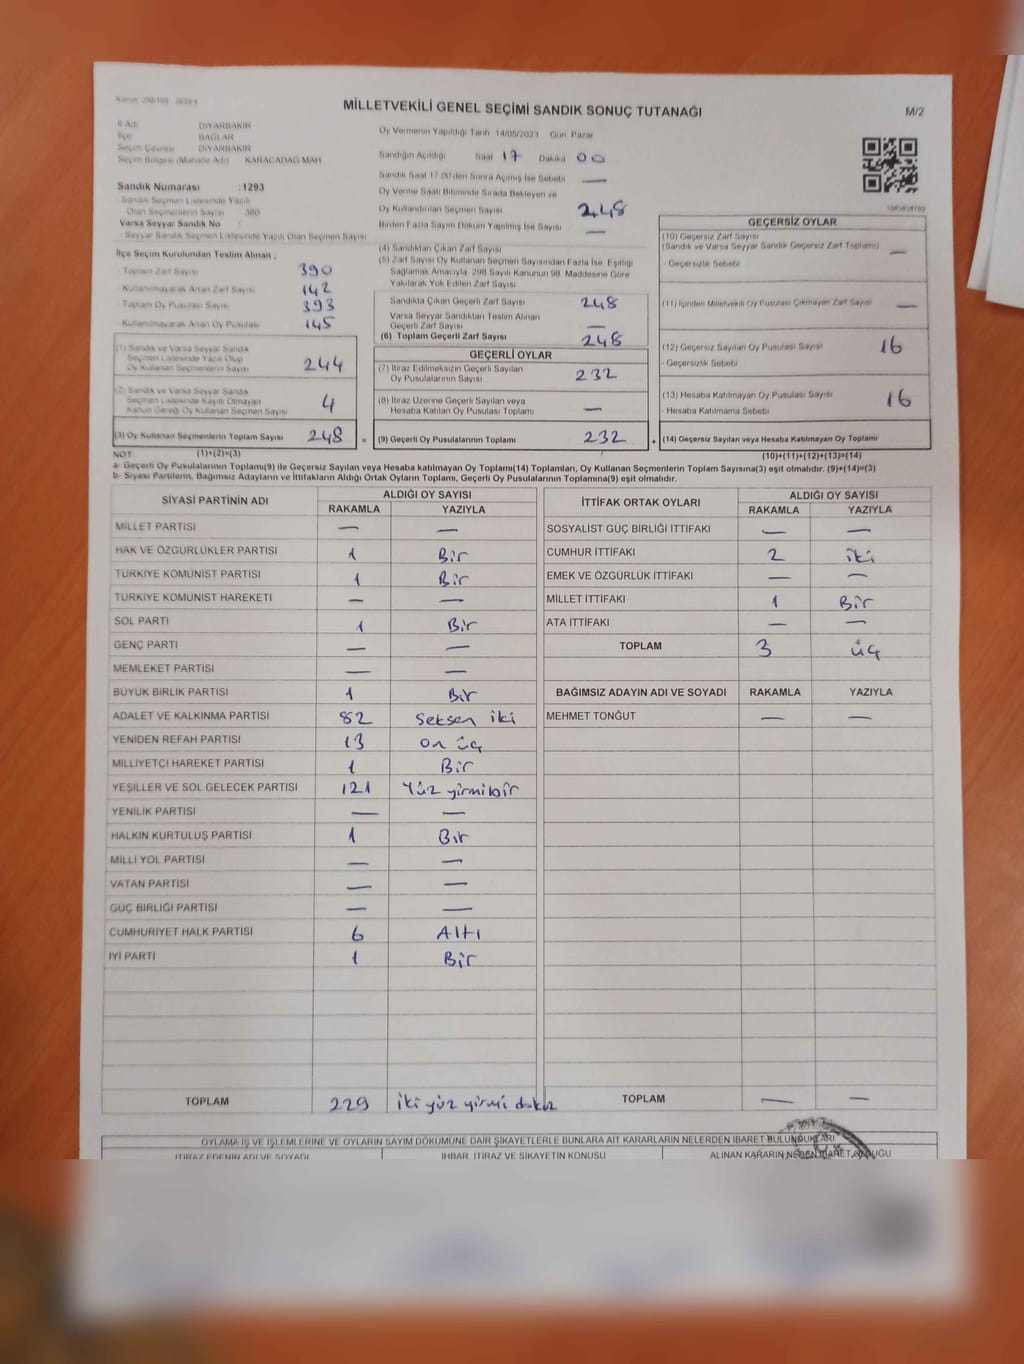 MİLLETVEKİLİ GENEL SEÇİMİ SANDIK SONUÇ TUTANAĞI
M/2
İl Adı DİYARBAKIR
İlçe BAĞLAR
Seçim Çevresi DİYARBAKIR
Seçim Bölgesi (Mahalle Adı) KARACADAĞ MAH
Sandık Numarası :1293
Sandık Seçmen Listesinde Yazılı
Olan Seçmenlerin Sayısı 380
Varsa Seyyar Sandık No :
Seyyar Sandık Seçmen Listesinde Yazılı Olan Seçmen Sayısı
İlçe Seçim Kurulundan Teslim Alınan ;
- Toplam Zarf Sayısı 390
- Kullanılmayarak Artan Zarf Sayısı 142
- Toplam Oy Pusulası Sayısı 393
- Kullanılmayarak Artan Oy Pusulası 145
(1) Sandık ve Varsa Seyyar Sandık
Seçmen Listesinde Yazılı Olup
Oy Kullanan Seçmenlerin Sayısı 244
(2) Sandık ve Varsa Seyyar Sandık
Seçmen Listesinde Kayıtlı Olmayan
Kanun Gereği Oy Kullanan Seçmen Sayısı 4
(3) Oy Kullanan Seçmenlerin Toplam Sayısı 248 =
Oy Vermenin Yapıldığı Tarih 14/05/2023 Gün Pazar
Sandığın Açıldığı Saat 17 Dakika 00
Sandık Saat 17 00'den Sonra Açılmış İse Sebebi —
Oy Verme Saati Bitiminde Sırada Bekleyen ve
Oy Kullandırılan Seçmen Sayısı 248
Birden Fazla Sayım Döküm Yapılmış İse Sayısı —
(4) Sandıktan Çıkan Zarf Sayısı
(5) Zarf Sayısı Oy Kullanan Seçmen Sayısından Fazla İse, Eşitliği
Sağlamak Amacıyla, 298 Sayılı Kanunun 98. Maddesine Göre
Yakılarak Yok Edilen Zarf Sayısı
Sandıkta Çıkan Geçerli Zarf Sayısı 248
Varsa Seyyar Sandıktan Teslim Alınan
Geçerli Zarf Sayısı —
(6) Toplam Geçerli Zarf Sayısı 248
GEÇERLİ OYLAR
(7) İtiraz Edilmeksizin Geçerli Sayılan
Oy Pusulalarının Sayısı 232
(8) İtiraz Üzerine Geçerli Sayılan veya
Hesaba Katılan Oy Pusulası Toplamı —
(9) Geçerli Oy Pusulalarının Toplamı 232 +
GEÇERSİZ OYLAR
(10) Geçersiz Zarf Sayısı
(Sandık ve Varsa Seyyar Sandık Geçersiz Zarf Toplamı) —
- Geçersizlik Sebebi
(11) İçinden Milletvekili Oy Pusulası Çıkmayan Zarf Sayısı —
(12) Geçersiz Sayılan Oy Pusulası Sayısı 16
- Geçersizlik Sebebi
(13) Hesaba Katılmayan Oy Pusulası Sayısı 16
- Hesaba Katılmama Sebebi
(14) Geçersiz Sayılan veya Hesaba Katılmayan Oy Toplamı
NOT: (1)+(2)=(3) (10)+(11)+(12)+(13)=(14)
a- Geçerli Oy Pusulalarının Toplamı(9) ile Geçersiz Sayılan veya Hesaba katılmayan Oy Toplamı(14) Toplamları, Oy Kullanan Seçmenlerin Toplam Sayısına(3) eşit olmalıdır. (9)+(14)=(3)
b- Siyasi Partilerin, Bağımsız Adayların ve İttifakların Aldığı Ortak Oyların Toplamı, Geçerli Oy Pusulalarının Toplamına(9) eşit olmalıdır.
SİYASİ PARTİNİN ADI ALDIĞI OY SAYISI
RAKAMLA YAZIYLA
MİLLET PARTİSİ — —
HAK VE ÖZGÜRLÜKLER PARTİSİ 1 Bir
TÜRKİYE KOMÜNİST PARTİSİ 1 Bir
TÜRKİYE KOMÜNİST HAREKETİ — —
SOL PARTİ 1 Bir
GENÇ PARTİ — —
MEMLEKET PARTİSİ — —
BÜYÜK BİRLİK PARTİSİ 1 Bir
ADALET VE KALKINMA PARTİSİ 82 Seksen iki
YENİDEN REFAH PARTİSİ 13 on üç
MİLLİYETÇİ HAREKET PARTİSİ 1 Bir
YEŞİLLER VE SOL GELECEK PARTİSİ 121 Yüz yirmibir
YENİLİK PARTİSİ — —
HALKIN KURTULUŞ PARTİSİ 1 Bir
MİLLİ YOL PARTİSİ — —
VATAN PARTİSİ — —
GÜÇ BİRLİĞİ PARTİSİ — —
CUMHURİYET HALK PARTİSİ 6 Altı
İYİ PARTİ 1 Bir
TOPLAM 229 iki yüz yirmi dokuz
İTTİFAK ORTAK OYLARI ALDIĞI OY SAYISI
RAKAMLA YAZIYLA
SOSYALİST GÜÇ BİRLİĞİ İTTİFAKI — —
CUMHUR İTTİFAKI 2 iki
EMEK VE ÖZGÜRLÜK İTTİFAKI — —
MİLLET İTTİFAKI 1 Bir
ATA İTTİFAKI — —
TOPLAM 3 üç
BAĞIMSIZ ADAYIN ADI VE SOYADI RAKAMLA YAZIYLA
MEHMET TONĞUT — —
TOPLAM — —
OYLAMA İŞ VE İŞLEMLERİNE VE OYLARIN SAYIM DÖKÜMÜNE DAİR ŞİKAYETLERLE BUNLARA AİT KARARLARIN NELERDEN İBARET BULUNDUKLARI
İTİRAZ EDENİN ADI VE SOYADI İHBAR, İTİRAZ VE ŞİKAYETİN KONUSU ALINAN KARARIN NEDEN İBARET OLDUĞU